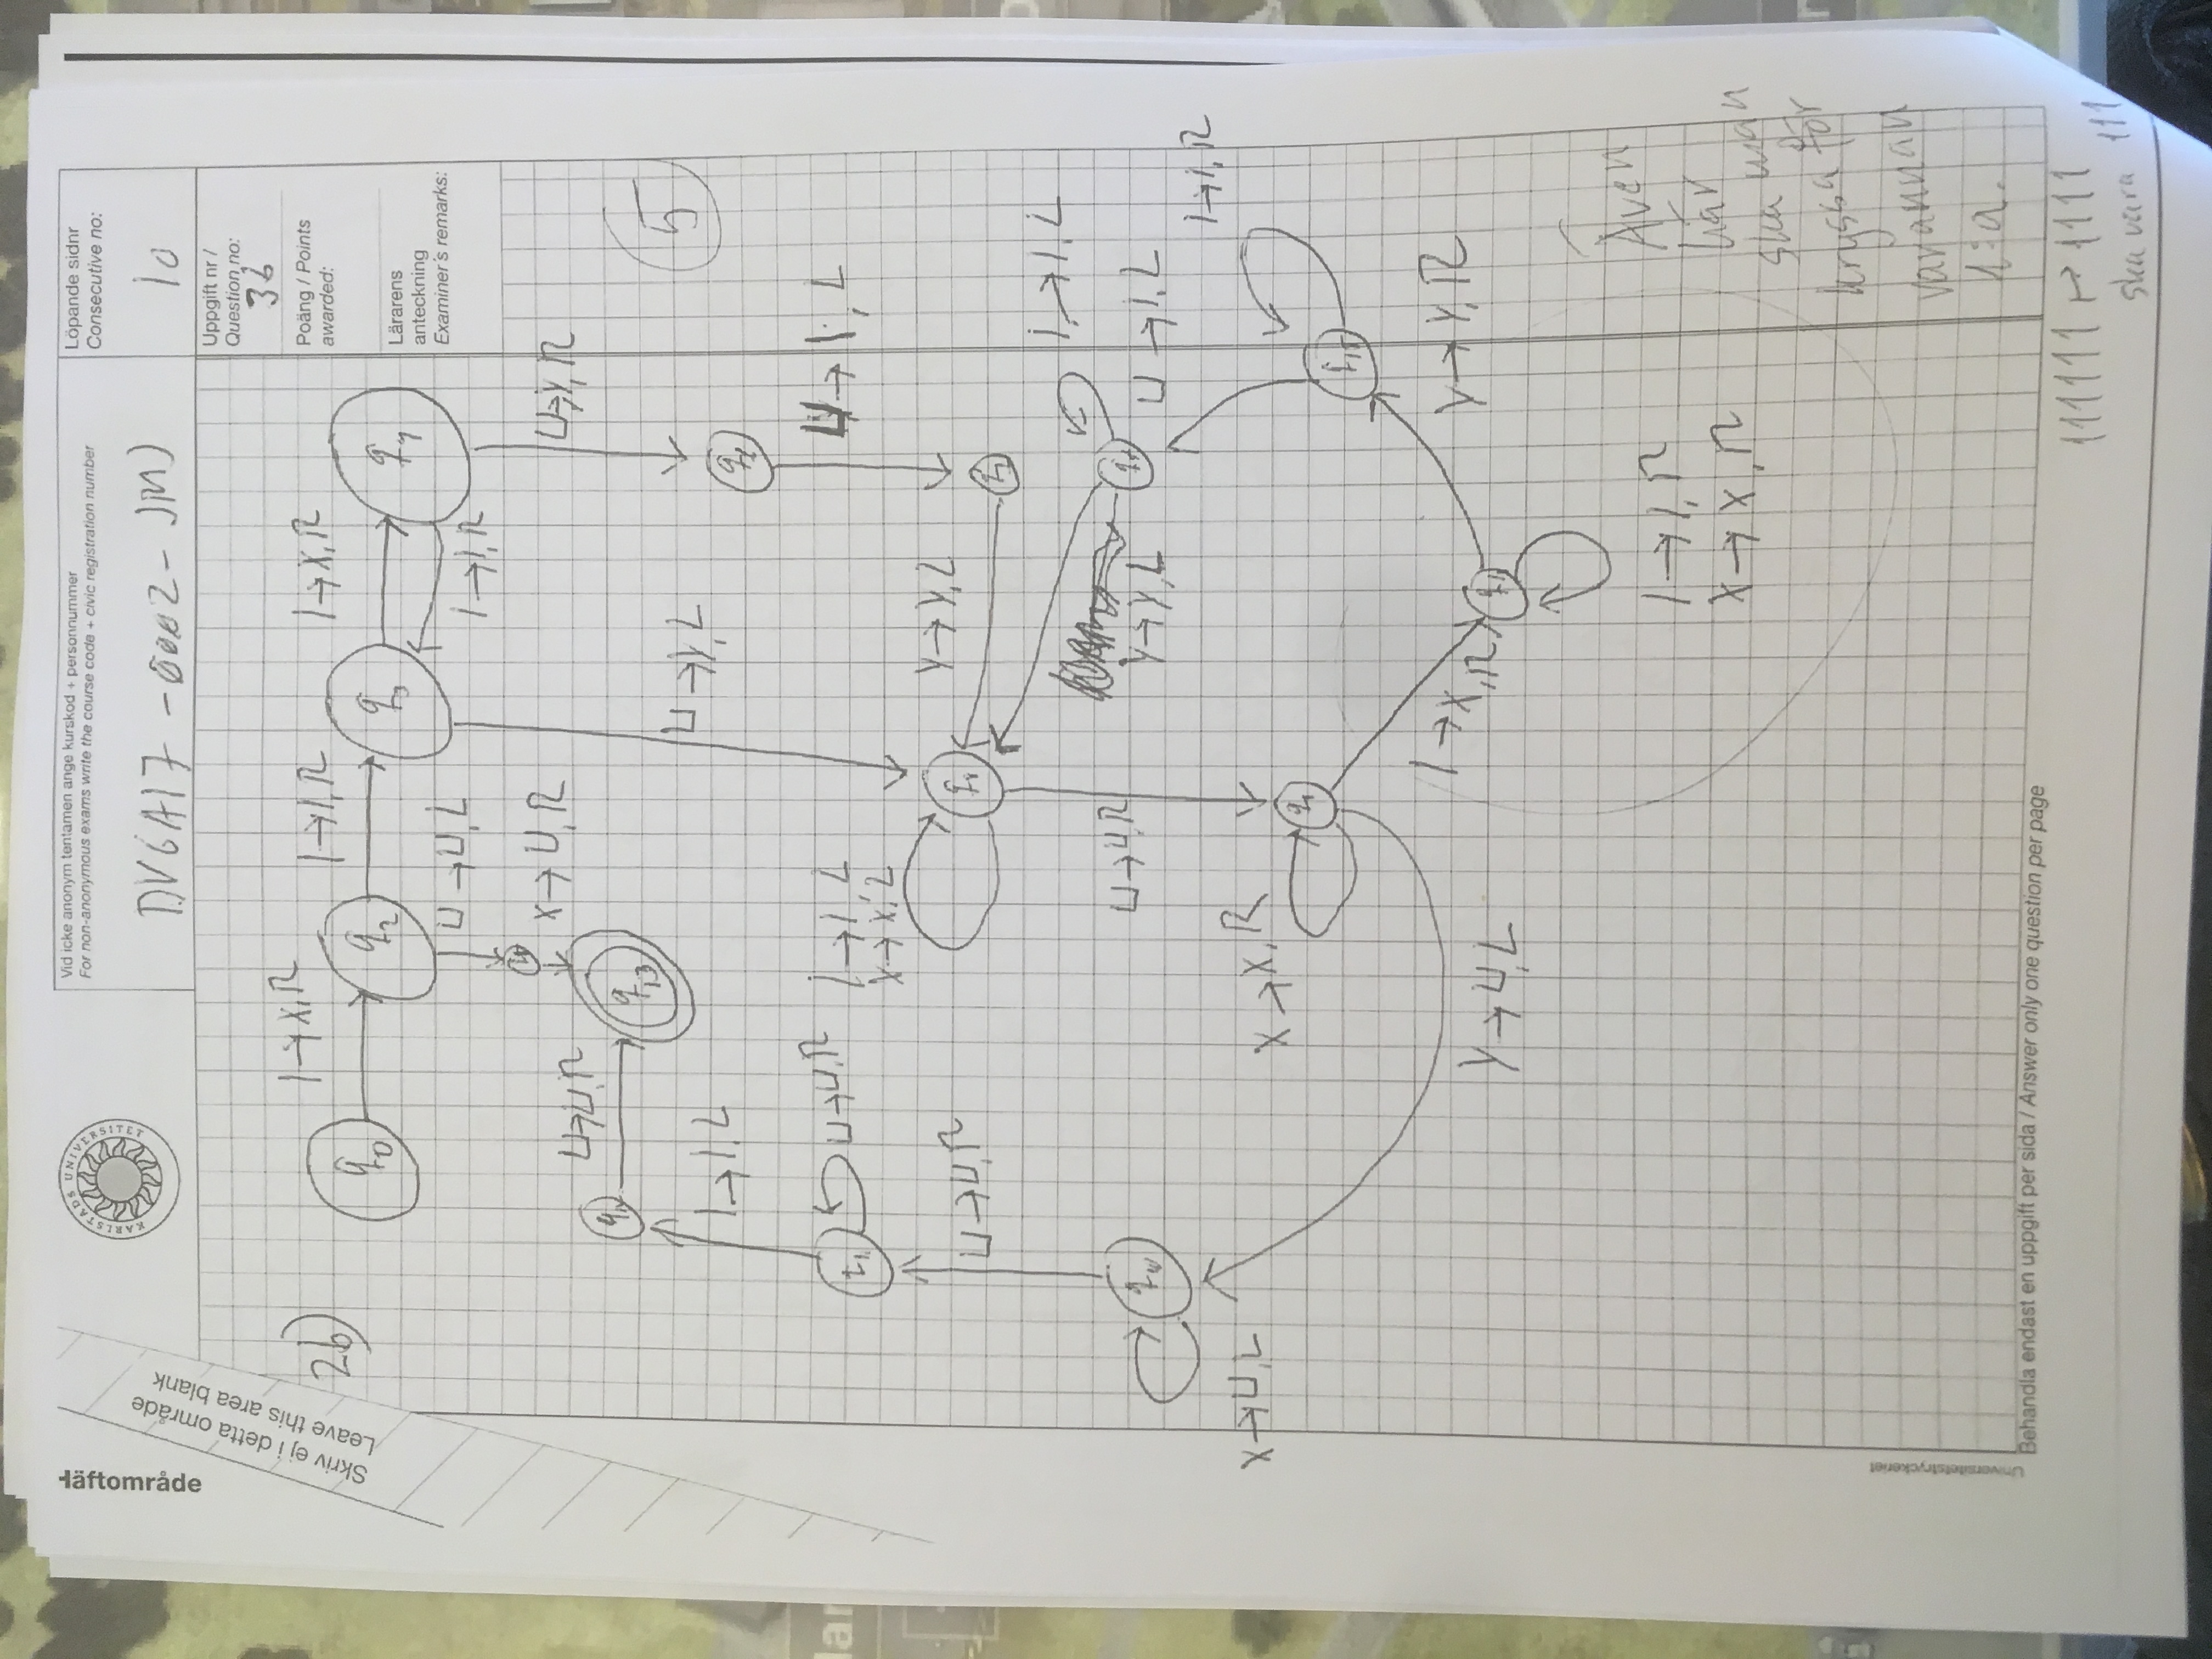 Häftområde
Skriv ej i detta område
Leave this area blank
KARLSTADS UNIVERSITET
Vid icke anonym tentamen ange kurskod + personnummer
For non-anonymous exams write the course code + civic registration number
DV6A17 -0002- JMJ
Löpande sidnr
Consecutive no:
10
Uppgift nr /
Question no:
3b
Poäng / Points
awarded:
Lärarens
anteckning
Examiner's remarks:
2b)
1→X,R
1→1,R
1→X,R
q0
q2
q3
q4
1→1,R
⊔→⊔,L
X→⊔,R
⊔→Y,R
⊔→⊔,R
q13
5
1→1,L
⊔→Y,L
⊔→1,L
⊔→⊔,R
1→1,L
X→X,L
Y→Y,L
⊔→⊔,R
1→1,L
⊔→⊔,R
Y→Y,L
⊔→1,L
q10
1→1,R
X→⊔,L
X→X,R
q15
1→X,R
Y→Y,R
Y→⊔,L
1→1,R
X→X,R
Även
här
ska man
kryssa för
varannan
1:a.
Universitetstryckeriet
Behandla endast en uppgift per sida / Answer only one question per page
111111 ↦ 1111
ska vara 111